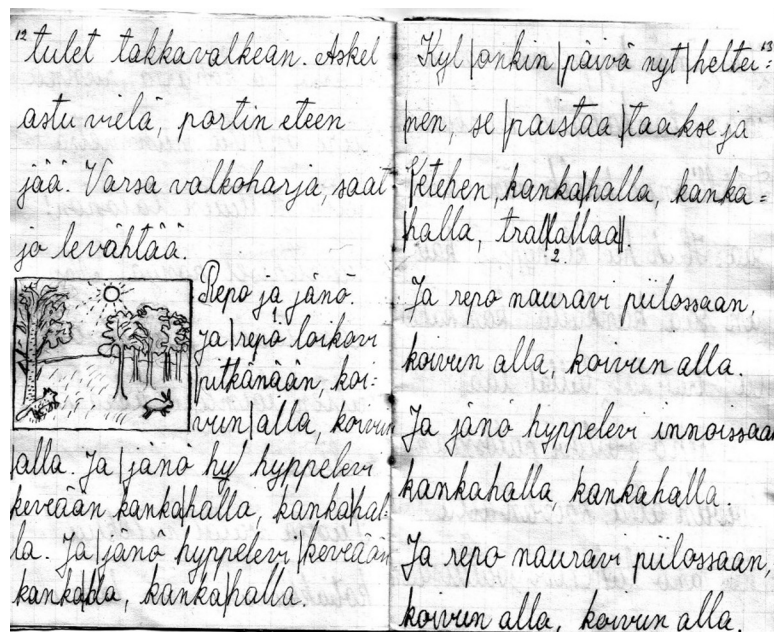 12
tulet takkavalkean. Askel
astu vielä, portin eteen
jää. Varsa valkoharja, saat
jo levähtää.
Repo ja jänö.
1
Ja|repo loikovi
pitkänään, koi=
vun|alla, koivun
|alla. Ja|jänö hy hyppelevi
keveään kanka|halla, kanka|hal=
la. Ja|jänö hyppelevi|keveään
kanka|lla, kanka|halla.
13
Kyl|onkin|päivä nyt|heltei=
nen, se|paistaa|taakse ja
|etehen, kanka|halla, kanka=
halla, tral||allaa||.
2
Ja repo nauravi piilossaan,
koivun alla, koivun alla.
Ja jänö hyppelevi innoissaan
kankahalla kankahalla.
Ja repo nauravi piilossaan,
koivun alla, koivun alla.